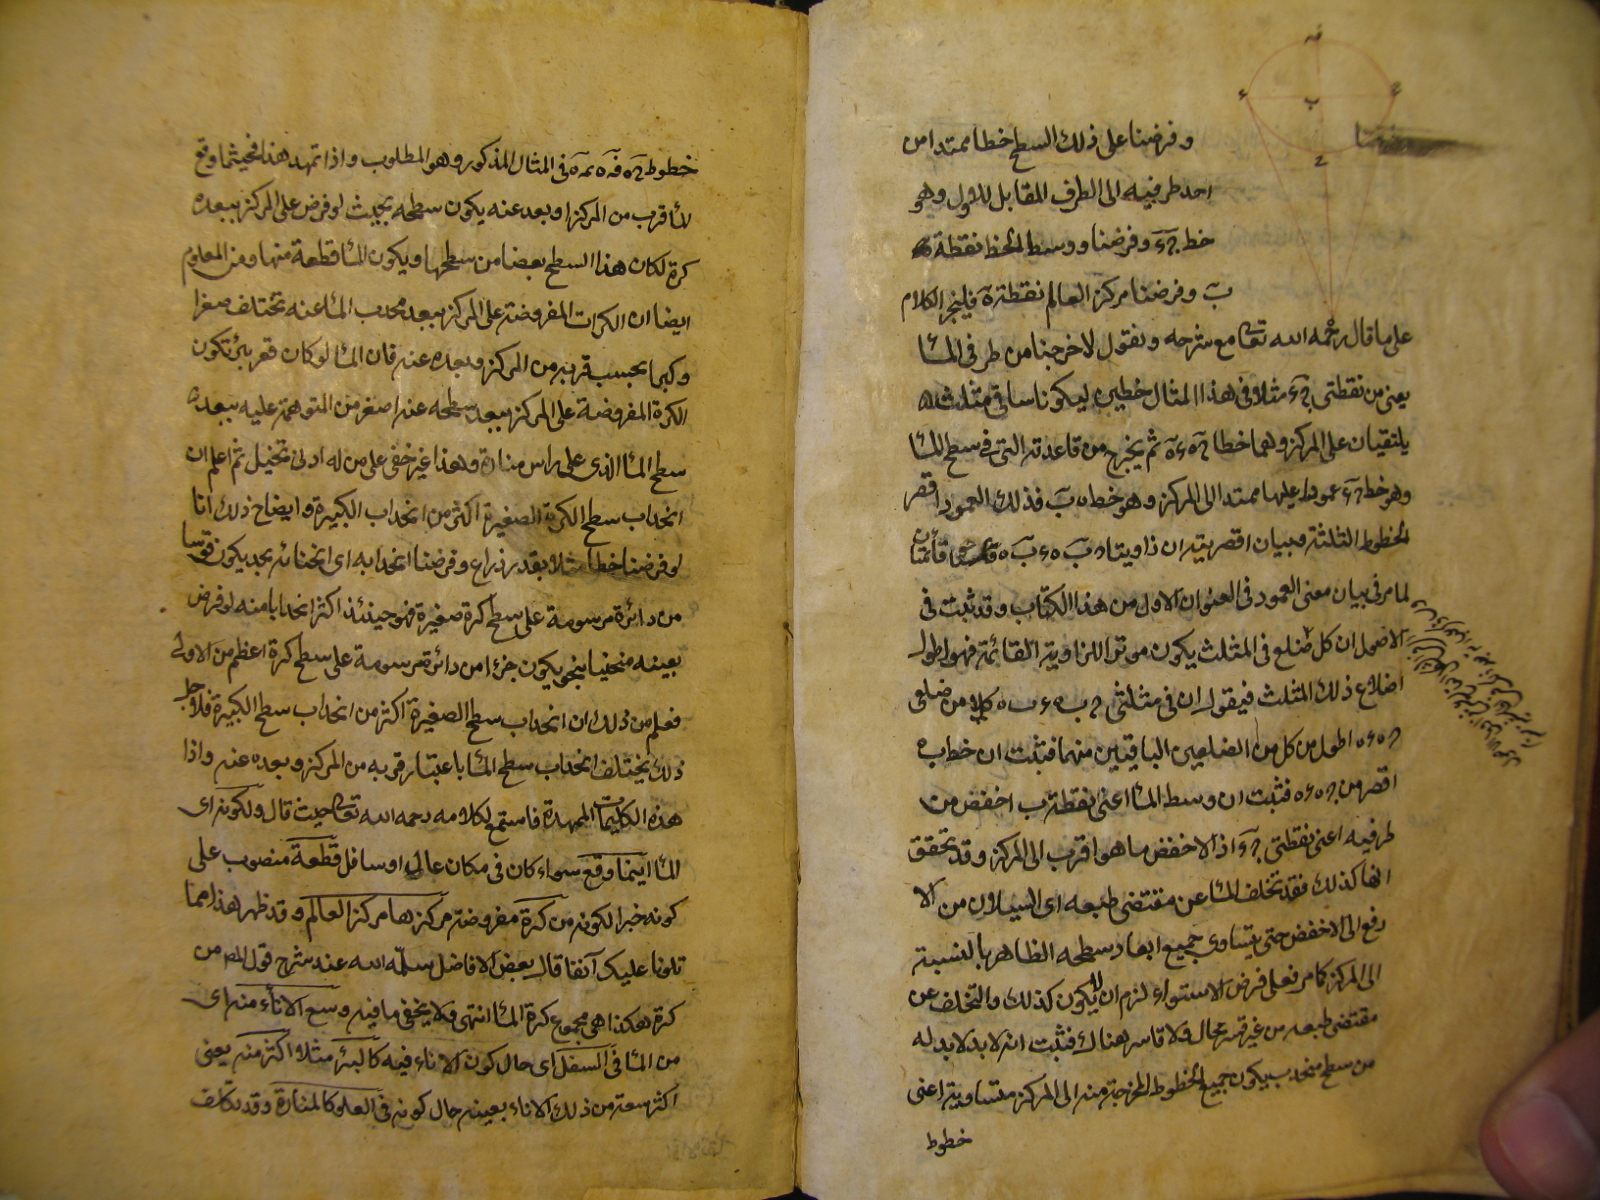 وفرضنا على ذلك السطح خطا ممتدا من
احد طرفيه الى الطرف المقابل للاول وهو
خط وفرضنا وسط الخط نقطة
ب وفرضنا مركز العالم نقطة ه فلينجر الكلام
على ما قال رحمه الله تعا مع شرحه ونقول لاخرجنا من طرفى المآ
يعنى من نقطتى ح ء مثلا فى هذا المثال خطين ليكونا ساقى مثلث
يلتقيان على المركز وهما خطا ح ه ء ه ثم يخرج من قاعدته التى فى سطح المآ
وهو خط ح ء عمودا عليها ممتدا الى المركز وهو خط ه ب فذلك العمود اقصر
الخطوط الثلثة فبيان اقصريته ان زاويتا ح ب ه ء ب ه قائمتان
لما مر فى بيان معنى العمود فى العنوان الاول من هذا الكتاب وقد ثبت فى
الاصول ان كل ضلع فى المثلث يكون موترا للزاوية القائمة فهو اطول
اضلاع ذلك المثلث فيقول ان فى مثلثى ح ب ه ء ب ه كلا من ضلعى
ح ه ء ه اطول من كل من الضلعين الباقيين منهما فثبت ان خط ب ه
اقصر من ح ه ء ه فثبت ان وسط المآ اعنى نقطة ب اخفض من
طرفيه اعنى نقطتى ح ء اذ الاخفض ما هو اقرب الى المركز وقد تحقق
انها كذلك فقد تخلف المآ عن مقتضى طبعه اى السيلان من الا
رفع الى الاخفض حتى يتساوى جميع ابعاد سطحه الظاهر بالنسبة
الى المركز كما مر فعلى فرض الاستواء لزم ان لا يكون كذلك والتخلف عن
مقتضى طبعه من غير قسر محال ولا قاسر هناك فثبت انه لا بد لا بد له
من سطح منحدب يكون جميع الخطوط المخرجة منه الى المركز متساوية اعنى
خطوط
خطوط ح ه ء ه فى المثال المذكور وهو المطلوب واذا تمهد هذا فحيثما وقع
المآ قرب من المركز او بعد عنه يكون سطحه بحيث لو فرض على المركز ببعده
كرة لكان هذا السطح بعضا من سطحها ويكون المآ قطعة منها ومن المعلوم
ايضا ان الكرات المفروضة على المركز ببعد محدب المآ عنه تختلف صغرا
وكبرا بحسب قربه من المركز وبعده عنه فان المآ لو كان قعر بئر تكون
الكرة المفروضة على المركز ببعد سطحه عنه اصغر من المتوهمة عليه ببعده
سطح المآ الذى على راس منارة وهذا غير خفى على من له ادنى تخيل ثم اعلم ان
انحداب سطح الكرة الصغيرة اكثر من انحداب الكبيرة وايضاح ذلك انا
لو فرضنا خطا مثلا بقدر ذراع وفرضنا انحدابه اى انحنائه بحد يكون قوسا
من دائرة مرسومة على سطح كرة صغيرة فهو حينئذ اكثر انحدابا منه لو فرض
بعينه منحنيا بنحو يكون جزءا من دائرة مرسومة على سطح كرة اعظم من الاولى
فعلم من ذلك ان انحداب سطح الصغيرة اكثر من انحداب سطح الكبيرة فلاجل
ذلك يختلف انحداب سطح المآ باعتبار قربه من المركز وبعده عنه واذا
هذه الكليمات الممهدة فاستمع لكلامه رحمه الله تعا حيث قال ولكونه اى
المآ اينما وقع سواء كان فى مكان عال او سافل قطعة منصوب على
كونه خبرا لكونه من كرة مفروضة مركزها مركز العالم وقد ظهر هذا مما
تلونا عليك آنفا قال بعض الافاضل سلمه الله عند شرح قول المص من
كرة هكذا هى مجموع كرة المآ انتهى ولا يخفى ما فيه وسع الاناء منه اى
من المآ فى السفل اى حال كون الاناء فيه كالبئر مثلا اكثر منه يعنى
اكثر سعة من ذلك الاناء بعينه حال كونه فى العلو كالمنارة وقد